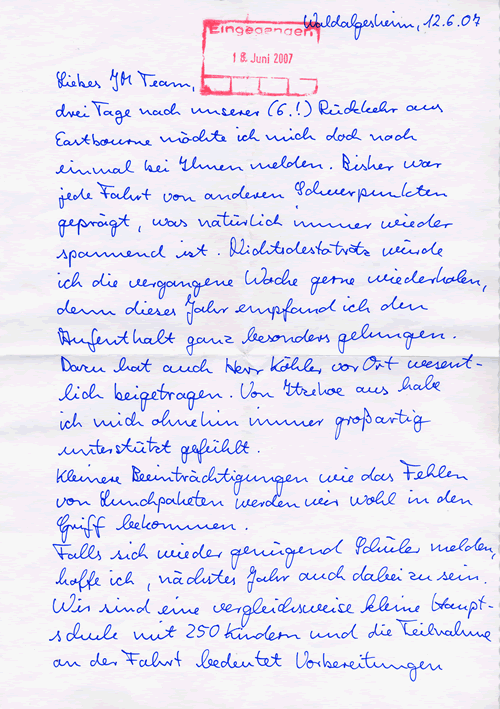 Waldalgesheim, 12.6.07
Eingegangen
18. Juni 2007
Liebes JM Team,
drei Tage nach unserer (6.!) Rückkehr aus
Eastbourne möchte ich mich doch noch
einmal bei Ihnen melden. Bisher war
jede Fahrt von anderen Schwerpunkten
geprägt, was natürlich immer wieder
spannend ist. Nichtsdestotrotz würde
ich die vergangene Woche gerne wiederholen,
denn dieses Jahr empfand ich den
Aufenthalt ganz besonders gelungen.
Dazu hat auch Herr Köhler vor Ort wesent-
lich beigetragen. Von Itzehoe aus habe
ich mich ohnehin immer großartig
unterstützt gefühlt.
Kleinere Beeinträchtigungen wie das Fehlen
von Lunchpaketen werden wir wohl in den
Griff bekommen.
Falls sich wieder genügend Schüler melden,
hoffe ich, nächstes Jahr auch dabei zu sein.
Wir sind eine vergleichsweise kleine Haupt-
schule mit 250 Kindern und die Teilnahme
an der Fahrt bedeutet Vorbereitungen